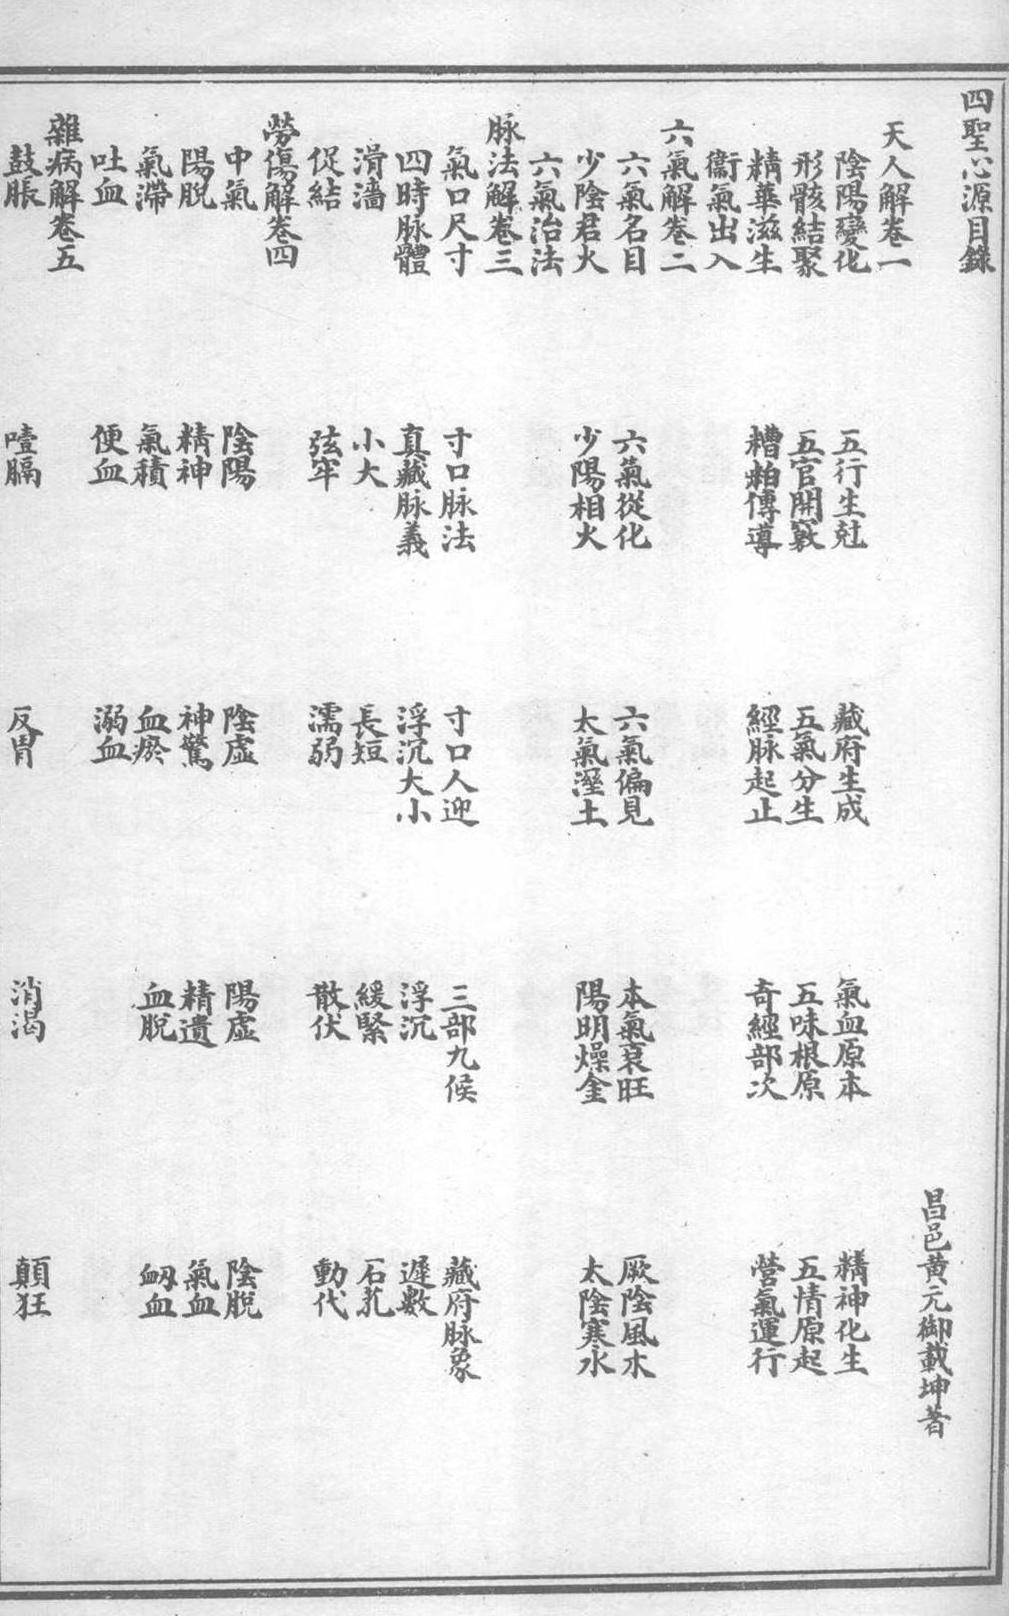 四聖心源目錄
昌邑黃元御載坤著
天人解卷一
陰陽變化 五行生尅 藏府生成 氣血原本 精神化生
形骸結聚 五官開竅 五氣分生 五味根原 五情原起
精華滋生 糟粕傳導 經脉起止 奇經部次 營氣運行
衞氣出入
六氣解卷二
六氣名目 六氣從化 六氣偏見 本氣衰旺 厥陰風木
少陰君火 少陽相火 太氣溼土 陽明燥金 太陰寒水
六氣治法
脉法解卷三
氣口尺寸 寸口脉法 寸口人迎 三部九候 藏府脉象
四時脉體 真藏脉義 浮沉大小 浮沉 遲數
滑濇 小大 長短 緩緊 石芤
促結 弦牢 濡弱 散伏 動代
勞傷解卷四
中氣 陰陽 陰虛 陽虛 陰脫
陽脫 精神 神驚 精遺 氣血
氣滯 氣積 血瘀 血脫 衂血
吐血 便血 溺血
雜病解卷五
鼓脹 噎膈 反胃 消渴 顛狂